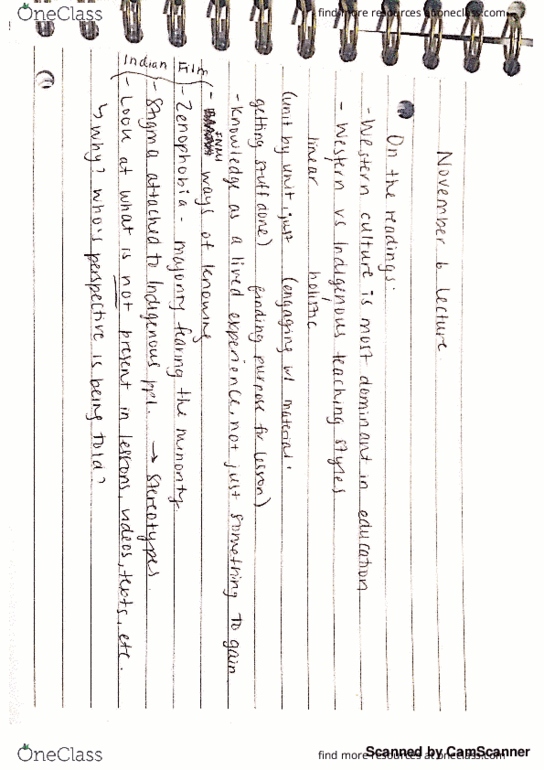 OneClass
find more resources at oneclass.com
November 6 Lecture
On the readings:
- Western culture is most dominant in education
- Western vs Indigenous teaching styles
linear holistic
(unit by unit, just (engaging w/ material,
getting stuff done) finding purpose for lesson)
- Knowledge as a lived experience, not just something to gain
- FNMI ways of knowing
Indian Film
- Zenophobia - majority fearing the minority
- Stigma attached to Indigenous ppl. → stereotypes
- Look at what is not present in lessons, videos, texts, etc.
↳ Why? Who's perspective is being told?
OneClass
find more resources at oneclass.com
Scanned by CamScanner